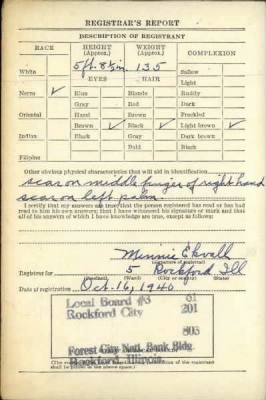 REGISTRAR'S REPORT
DESCRIPTION OF REGISTRANT
RACE HEIGHT (Approx.) WEIGHT (Approx.) COMPLEXION
5 ft. 8½ in. 135
White Sallow
EYES HAIR Light
Negro ✓ Blue Blonde Ruddy
Gray Red Dark
Oriental Hazel Brown Freckled
Brown ✓ Black ✓ Light brown ✓
Indian Black Gray Dark brown
Bald Black
Filipino
Other obvious physical characteristics that will aid in identification
scar on middle finger of right hand
scar on left palm.
I certify that my answers are true; that the person registered has read or has had
read to him his own answers; that I have witnessed his signature or mark and that
all of his answers of which I have knowledge are true, except as follows:
Minnie Ekvall
(Signature of registrar)
Registrar for 5 Rockford Ill
(Precinct) (Ward) (City or county) (State)
Date of registration Oct. 16, 1940
Local Board #3 61
Rockford City 201
803
Forest City Natl. Bank Bldg.
Rockford, Illinois
(The stamp of the Local Board having jurisdiction of the registrant
shall be placed in the above space.)